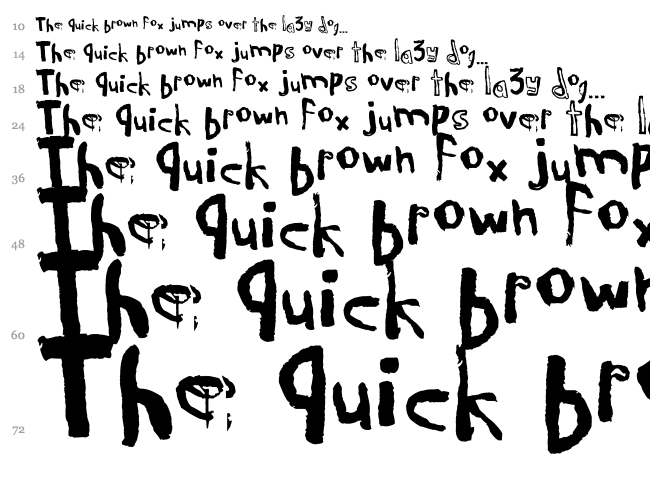 10 The quick brown Fox jumps over the la3y dog...
14 The quick brown Fox jumps over the la3y dog...
18 The quick brown Fox jumps over the la3y dog...
24 The quick brown Fox jumps over the l
36 The quick brown Fox jump
48 The quick brown Fox
60 The quick brown
72 The quick bro